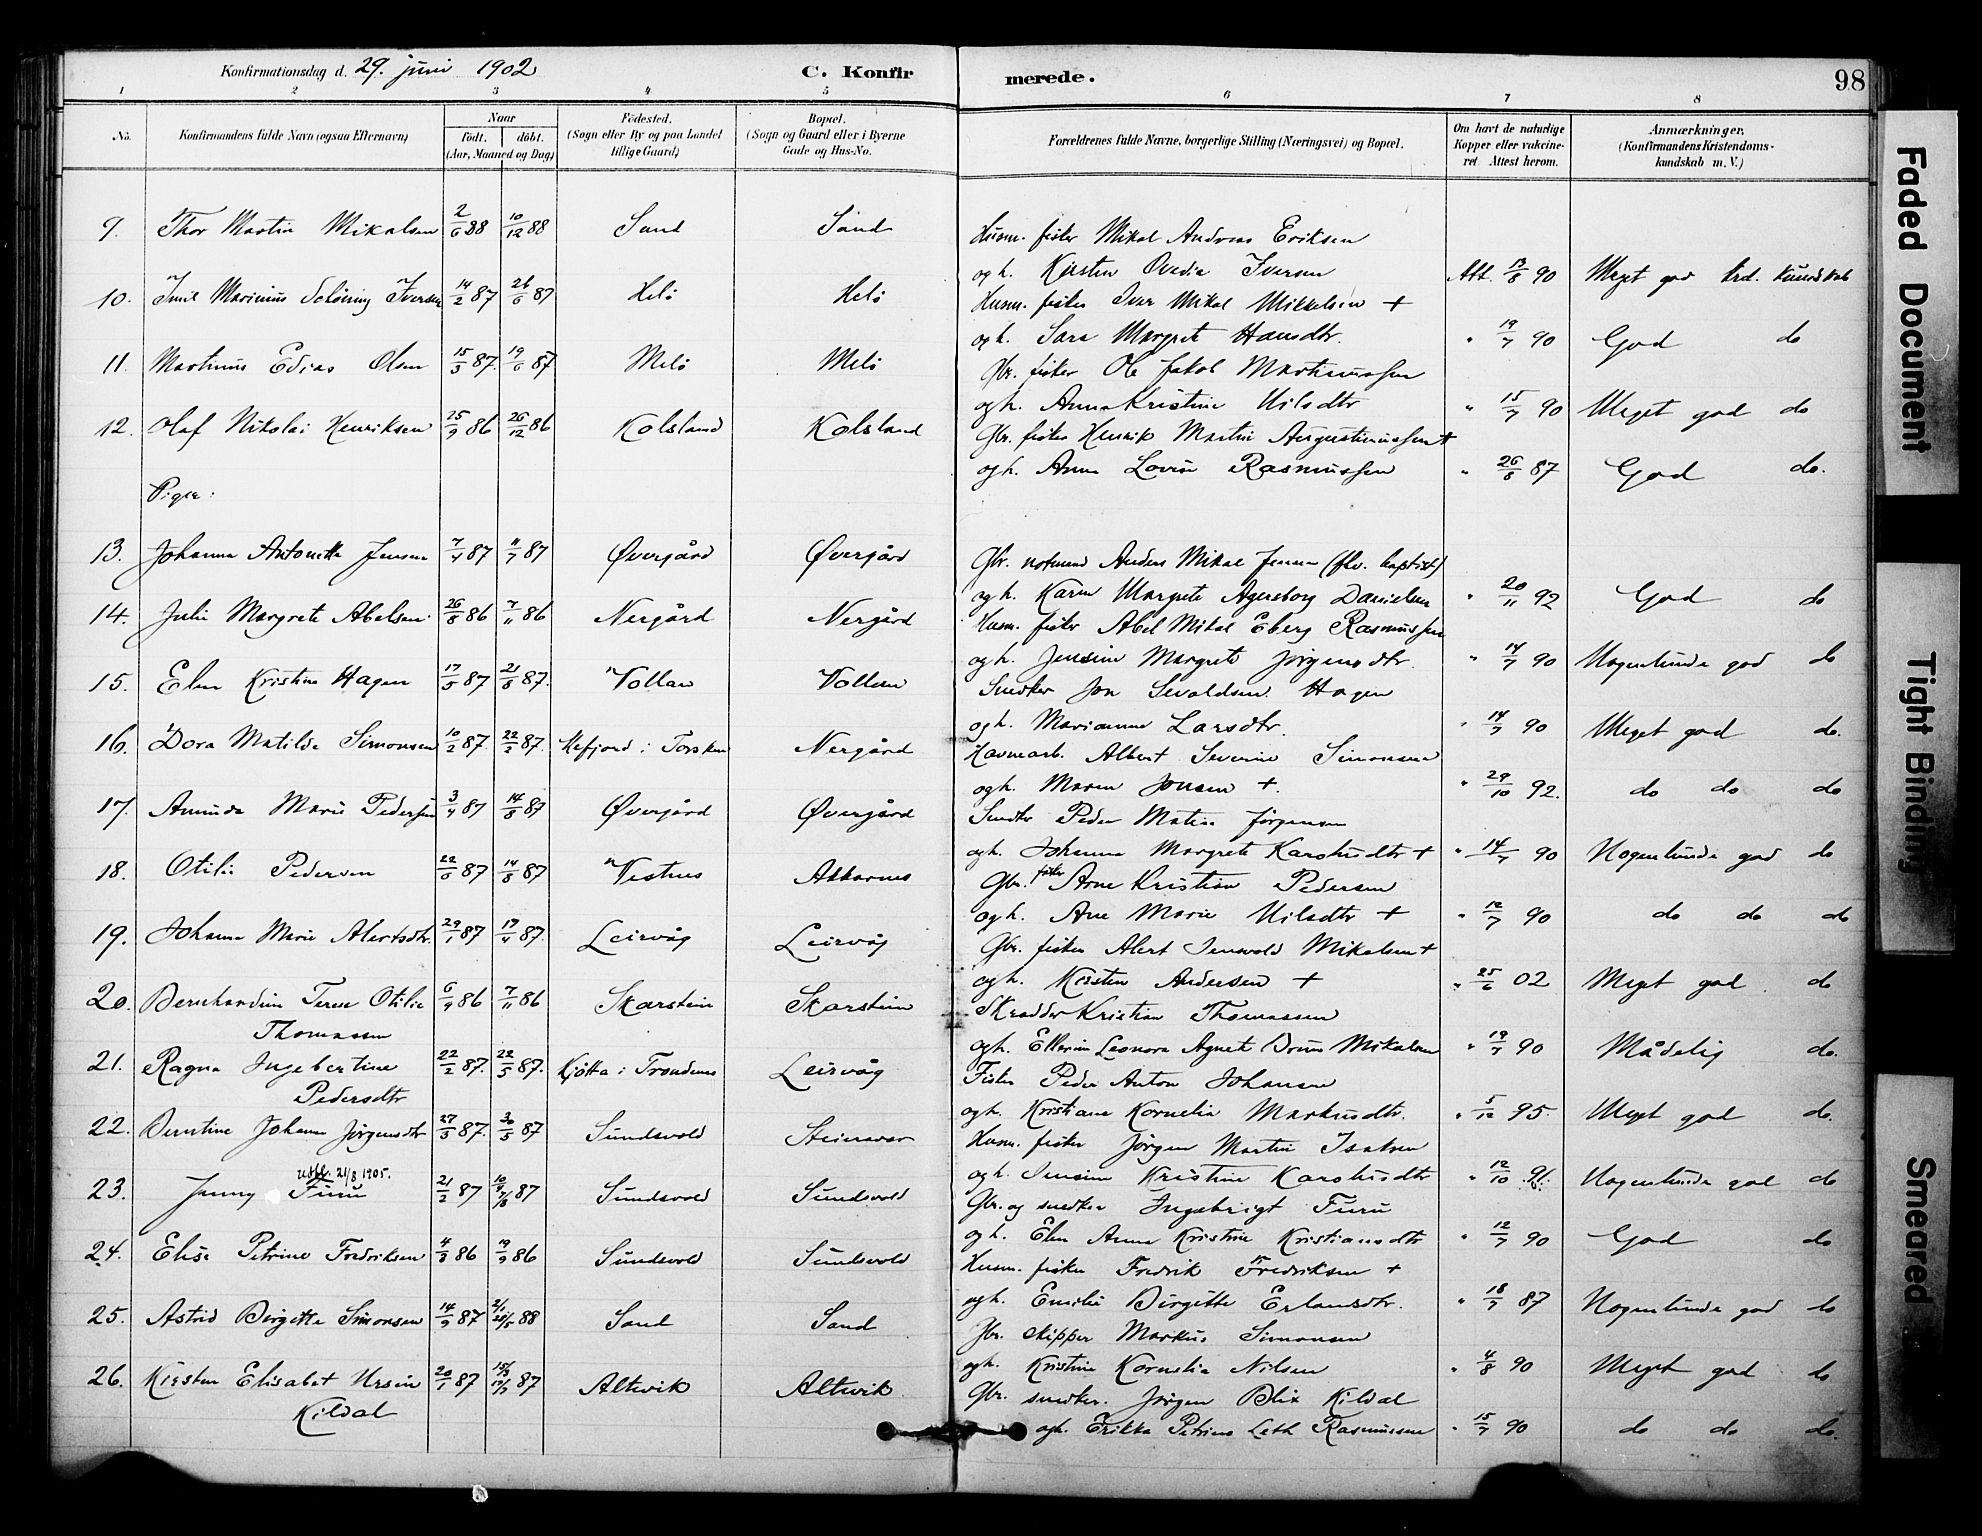 Konfirmationsdag d. 29. juni 1902 C. Konfir merede. 98
1 2 3 4 5 6 7 8
No. Konfirmandens fulde Navn (ogsaa Efternavn) Naar født. døbt. (Aar, Maaned og Dag) Fødested. (Sogn eller By og paa Landet tillige Gaard) Bopæl. (Sogn og Gaard eller i Byerne Gade og Hus-No. Forældrenes fulde Navne, borgerlige Stilling (Næringsvei) og Bopæl. Om havt de naturlige Kopper eller vakcineret. Attest herom. Anmærkninger. (Konfirmandens Kristendomskundskab m. V.)
9. Thor Martin Mikalsen 2/6 88 10/12 88 Sand Sand Husm. fisker Mikal Andreas Eriksen
og h. Kirsten Ovedia Iversen Att. 13/8 90 Meget god krd. kundskab
10. Emil Marinius Schöning Iversen 14/2 87 26/6 87 Helö Helö Husm. fisker Iver Mikal Mikkelsen +
og h. Sara Margrete Hansdtr. " 19/7 90 God do
11. Martinus Edias Olsen 15/3 87. 19/6 87. Melö Melö Gbr. fisker Ole Jakob Martinussen
og h. Anna Kristine Nilsdtr " 15/7 90 Meget god do
12. Olaf Nikolai Henriksen 25/9 86 26/12 86 Kolsland Kolsland Gbr. fisker Henrik Martin Augustinussen +
og h. Anna Lovise Rasmussen " 26/8 87 God do.
Piger:
13. Johanna Antonette Jensen 7/4 87 11/7 87 Øvergård Øvergård Gbr. notmand Anders Mikal Jensen (fhv. baptist)
og h. Karen Margrete Agersborg Danielsen " 20/11 92 God do
14. Julie Margrete Abelsen 26/8 86 7/11 86 Nergård Nergård Husm. fisker Abel Mikal Eberg Rasmussen
og h. Jensine Margrete Jørgensdtr. " 14/7 90 Nogenlunde god do
15. Elen Kristine Hagen 17/5 87 21/8 87. Vollan Vollan Snedker Jon Sevaldsen Hagen
og h. Marianne Larsdtr. " 14/7 90 Meget god do.
16. Dora Matilde Simonsen 10/2 87. 22/5 87. Mefjord i Torsken Nergård Havnearb. Albert Severin Simonsen
og h. Maren Jonsen +. " 29/10 92. do do do
17. Amunda Marie Pedersen 3/4 87 14/8 87 Øvergård Øvergård Snedker Peder Matias Jørgensen
og h. Johanna Margrete Karoliusdtr + " 14/7 90 Nogenlunde god do
18. Otilie Pedersen 22/6 87 14/8 87 Vestnes Akkarnes Gbr. fisker Arne Kristian Pedersen
og h. Ane Marie Nilsdtr + " 12/7 90 do do do
19. Johanna Marie Alertsdtr. 29/1 87 17/4 87. Leirvåg Leirvåg Gbr. fisker Alert Mikalsen +
og h. Kirsten Andersen + " 25/6 02 Meget god. do
20. Bernhardine Terese Otilie Thomassen 6/9 86 7/11 86 Skarstein Skarstein Skrædder Kristian Thomassen
og h. Ellerine Leonora Agnete Bruns Mikalsen " 19/7 90 Mådelig do.
21. Ragna Ingebertine Pedersdtr 22/2 87. 22/5 87. Kjøtta i Trondenes Leirvåg Fisker Peder Anton Johansen
og h. Kristiane Kornelia Markusdtr. " 5/12 95. Meget god do.
22. Berntine Johanna Jørgensdtr 27/3 87. 30/5 87 Sundsvold Steinavær Husm. fisker Jørgen Martin Isaksen
og h. Jensine Kristine Karoliusdtr " 12/10 91. Nogenlunde god do
23. Jenny Furu Utfl. 21/8 1905. 21/2 87 10/4 7/8 87 Sundsvold Sundsvold Gbr. og snedker Ingebrigt Furu
og h. Elen Anna Kristine Kristiansdtr " 12/7 90 God do
24. Elise Petrine Fredriksen 4/3 86 19/9 86 Sundsvold Sundsvold Husm. fisker Fredrik Fredriksen +
og h. Emilie Birgitte Erlandsdtr. " 18/7 87 Nogenlunde god do
25. Astrid Birgitte Simonsen 14/9 87 2/1 21/5 88 Sand Sand Gbr. skipper Markus Simonsen
og h. Kristine Kornelia Nilsen " 4/8 90 Meget god do
26. Kirsten Elisabet Ursin Kildal 20/1 87 15/3 17/7 87 Altevik Altevik Gbr. snedker. Jørgen Blix Kildal
og h. Erikka Petrine Leth Rasmussen " 15/7 90 do do do.
Faded Document
Tight Binding
Smeared